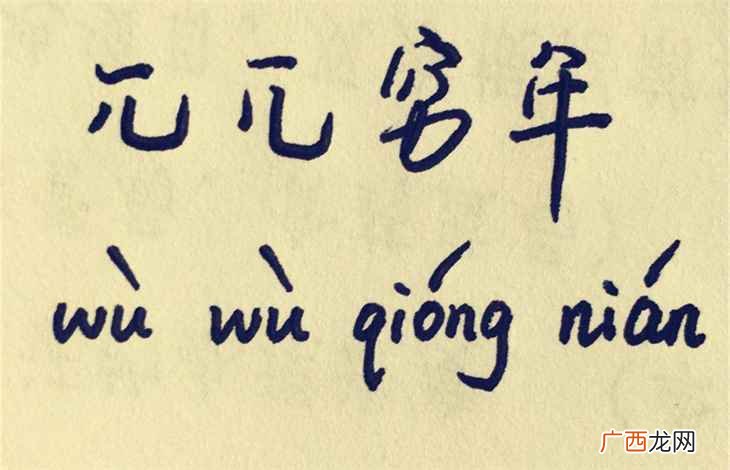 兀兀穷年
wù wù qióng nián
广西龙网